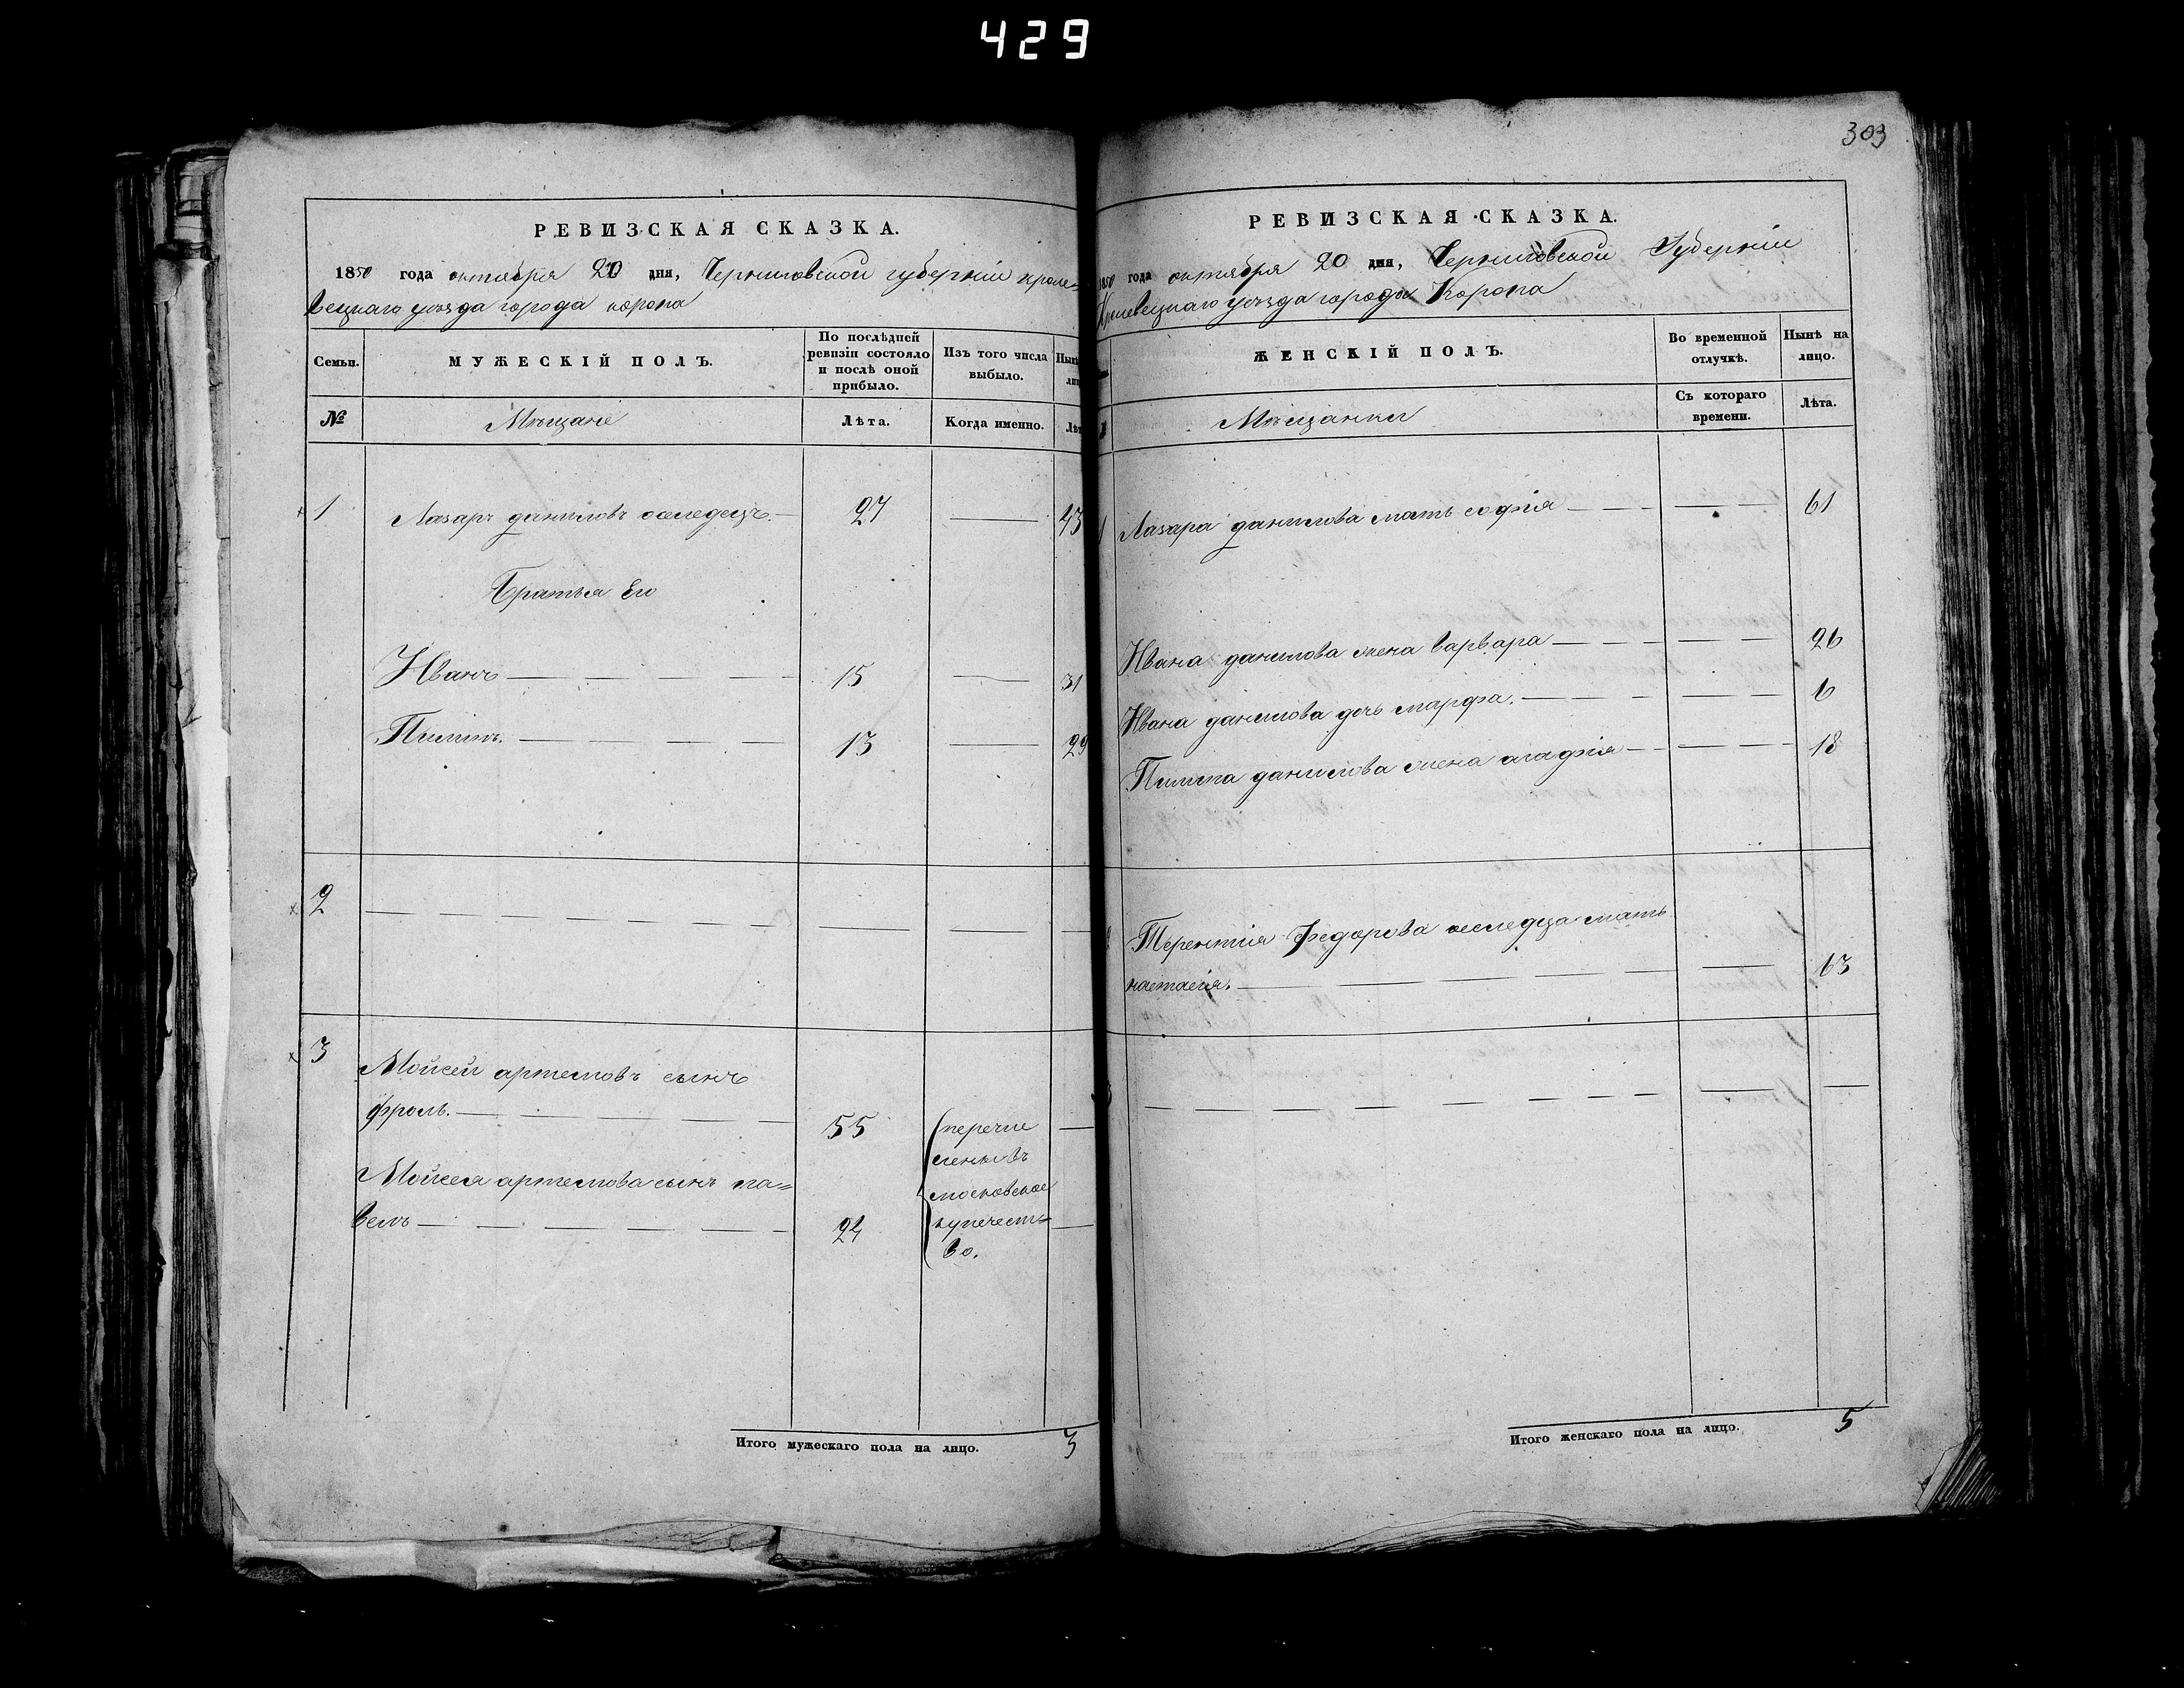 429
303
РЕВИЗСКАЯ СКАЗКА.
1850 года октября 20 дня, Черниговской губернiи кроле=
вецкаго уѣзда города коропа
Семьи.
МУЖЕСКІЙ ПОЛЪ.
По послѣдней ревизіи состояло и послѣ оной прибыло.
Изъ того числа выбыло.
№
Мѣщане
Лѣта.
Когда именно.
1 Лазарь даниловъ оселедецъ. — 27 — 43
Братья Его
Иванъ — 15 — 31
Пименъ. — 13 — 29
2 — — — —
3 Мойсей артемовъ сынъ
фролъ. — 55 — перечис
лены въ
московское
купечест=
во.
Мойсея артемова сынъ па=
велъ — 24 —
Итого мужескаго пола на лицо. 3
РЕВИЗСКАЯ СКАЗКА.
1850 года октября 20 дня, Черниговской Губернiи
Кролевецкаго уѣзда города Коропа
ЖЕНСКІЙ ПОЛЪ.
Во временной отлучкѣ.
Нынѣ на лицо.
Мѣщанки
Съ котораго времени.
Лѣта.
Лазара данилова мать софiя — — 61
Ивана данилова жена варвара — — 26
Ивана данилова дочь марфа. — — 6
Пимена данилова жена агафiя — — 18
Терентiя Федорова оселедца мать
настасiя. — — 63
— — —
Итого женскаго пола на лицо. 5